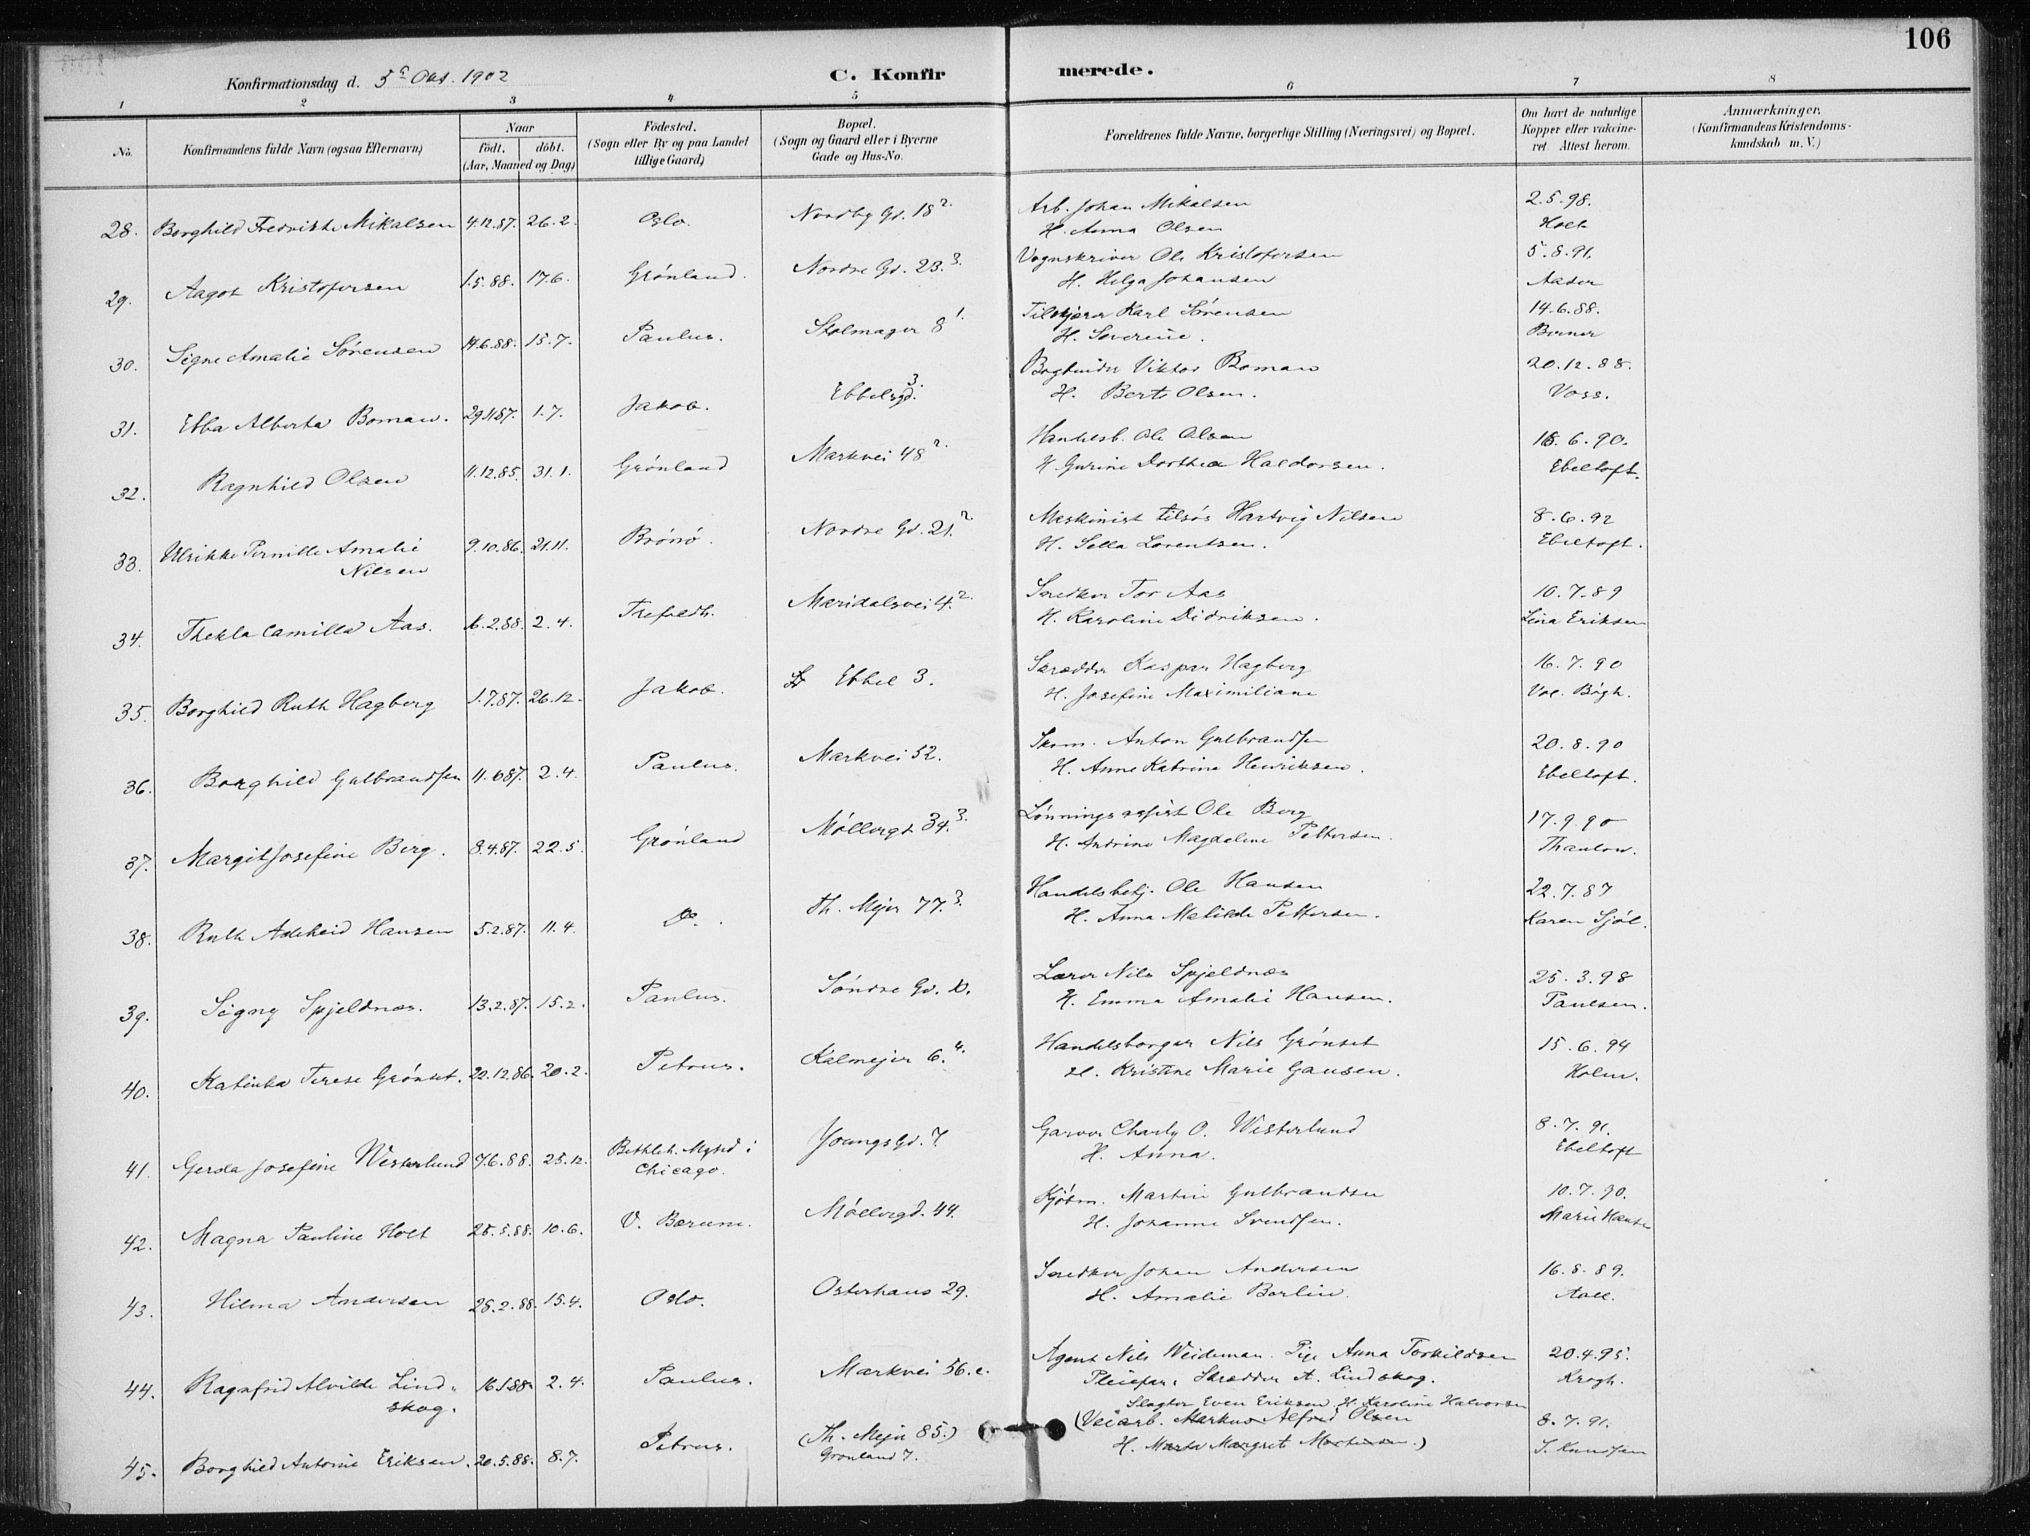 106
Konfirmationsdag d. 5 Okt. 1902
C. Konfirmerede.
1 2 3 4 5 6 7 8
No.
Konfirmandens fulde Navn (ogsaa Efternavn)
Naar
født. døbt.
(Aar, Maaned og Dag)
Fødested.
(Sogn eller By og paa Landet
tillige Gaard)
Bopæl.
(Sogn og Gaard eller i Byerne
Gade og Hus-No.
Forældrenes fulde Navne, borgerlige Stilling (Næringsvei) og Bopæl.
Om havt de naturlige
Kopper eller vakcine-
ret. Attest herom.
Anmærkninger.
(Konfirmandens Kristendoms-
kundskab m. V.)
28. Borghild Fredrikke Mikalsen 4.12.87. 26.2. Oslo. Nordby Gd. 18 2. Arb. Johan Mikalsen 2.5.98.
H. Anna Olsen Holt
29. Aagot Kristofersen 1.5.88. 17.6. Grönland. Nordre Gd. 23. 3. Vognskriver Ole Kristofersen 5.8.91.
H. Helga Johansen Aaser
30. Signe Amalie Sörensen 14.6.88. 15.7. Paulus. Stolmager 8 1. Tilskjærer Karl Sörensen 14.6.88.
H. Severine. Berner
31. Ebba Alberta Boman. 29.11.87. 1.7. Jakob. Ebbelsgd. 3. Bogbinder Viktor Boman 20.12.88.
H. Bert Olsen. Voss.
32. Ragnhild Olsen 11.12.85. 31.1. Grönland Markvei 48 2. Handelsb. Ole Olsen 18.6.90.
H. Gurine Dorthea Haldorsen. Ebeltoft.
33. Ulrikke Pernille Amalie 9.10.86. 21.11. Brönö. Nordre Gd. 21. 2 Maskinist tilsös Hartvig Nilsen 8.6.92
Nilsen H. Sella Lorentsen. Ebeltoft.
34. Thekla Camilla Aas. 16.2.88. 2.4. Trefoldh. Maridalsvei 4. 2. Snedker Tor Aas 10.7.89
H. Karoline Didriksen. Lina Eriksen
35. Borghild Ruth Hagberg 1.7.87. 26.12. Jakob. Ebbel 3. Skrædder Kaspar Hagberg 16.7.90
H. Josefine Maximiliane Vol. Bögh.
36. Borghild Gulbrandsen 11.6.87. 2.4. Paulus. Markvei 52. Skom. Anton Gulbrandsen 20.8.90
H. Anne Katrine Henriksen. Ebeltoft.
37. Margit Josefine Berg. 8.4.87. 22.5. Grönland Möllergt 34. 3. Lönningsassist Ole Berg 17.9.90
H. Andrine Magdalene Pettersen. Thaulow.
38. Ruth Adelheid Hansen 5.2.87. 11.4. Do. Th. Mejer 77. 3. Handelsbetj. Ole Hansen 22.7.87
H. Anna Matilde Pettersen. Karen Sjöl.
39. Signy Spjeldnæs. 13.2.87. 15.2. Paulus. Söndre Gd. 10. Lærer Nils Spjeldnæs 25.3.98
H. Emma Amalie Hansen. Paulsen.
40. Katinka Terese Grönset. 22.12.86. 20.2. Petrus. Kalmejer 6. 4. Handelsborger Nils Grönset 15.6.94
H. Kristine Marie Gausen. Holm.
41. Gerda Josefine Westerlund 7.6.88. 25.12. Bethleh. Mghd i Youngs Gd. 7. Garver Charly O. Westerlund 8.7.91.
Chicago. H. Anna. Ebeltoft
42. Magna Pauline Holt 25.5.88. 10.6. V. Bærum. Möllergd. 44. Kjöbm. Martin Gulbrandsen 10.7.90.
H. Johanne Svendsen. Marie Hansen
43. Hilma Andersen 25.2.88. 15.4. Oslo. Osterhaus 29. Snedker Johan Andersen 16.8.89.
H. Amalie Berlin. Aall.
44. Ragnfrid Alvilde Lind- 16.1.88. 2.4. Paulus. Markvei 56.c. Agent Nils Weideman. Pige Anna Torkildsen 20.4.95.
skog. Pleiefar: Skrædder A. Lindskog. Krogh.
Slagter Even Eriksen. H. Karoline Halvorsen
45. Borghild Antonie Eriksen. 20.5.88. 8.7. Petrus. (Th. Mejer 85.) (Veiarb. Markus Alfred Olsen 8.7.91.
Grönland 7. H. Marte Margret Mortensen.) S. Knudsen